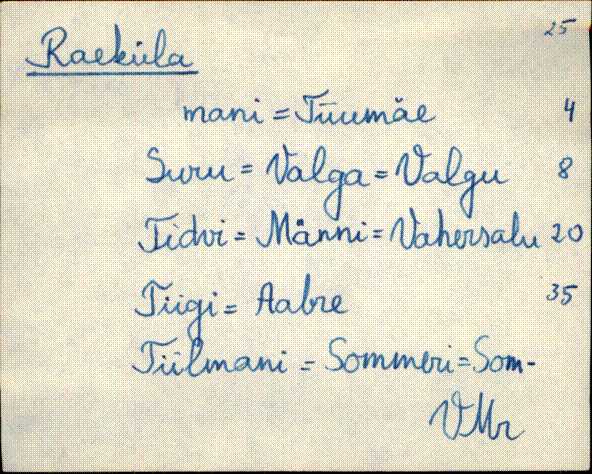 25
Raeküla
mani = Tüümäe 4
Suru = Valga = Valgu 8
Tidvi = Männi = Vahersalu 20
Tiigi = Aabre 35
Tiilmani = Sommeri = Som-
VMr